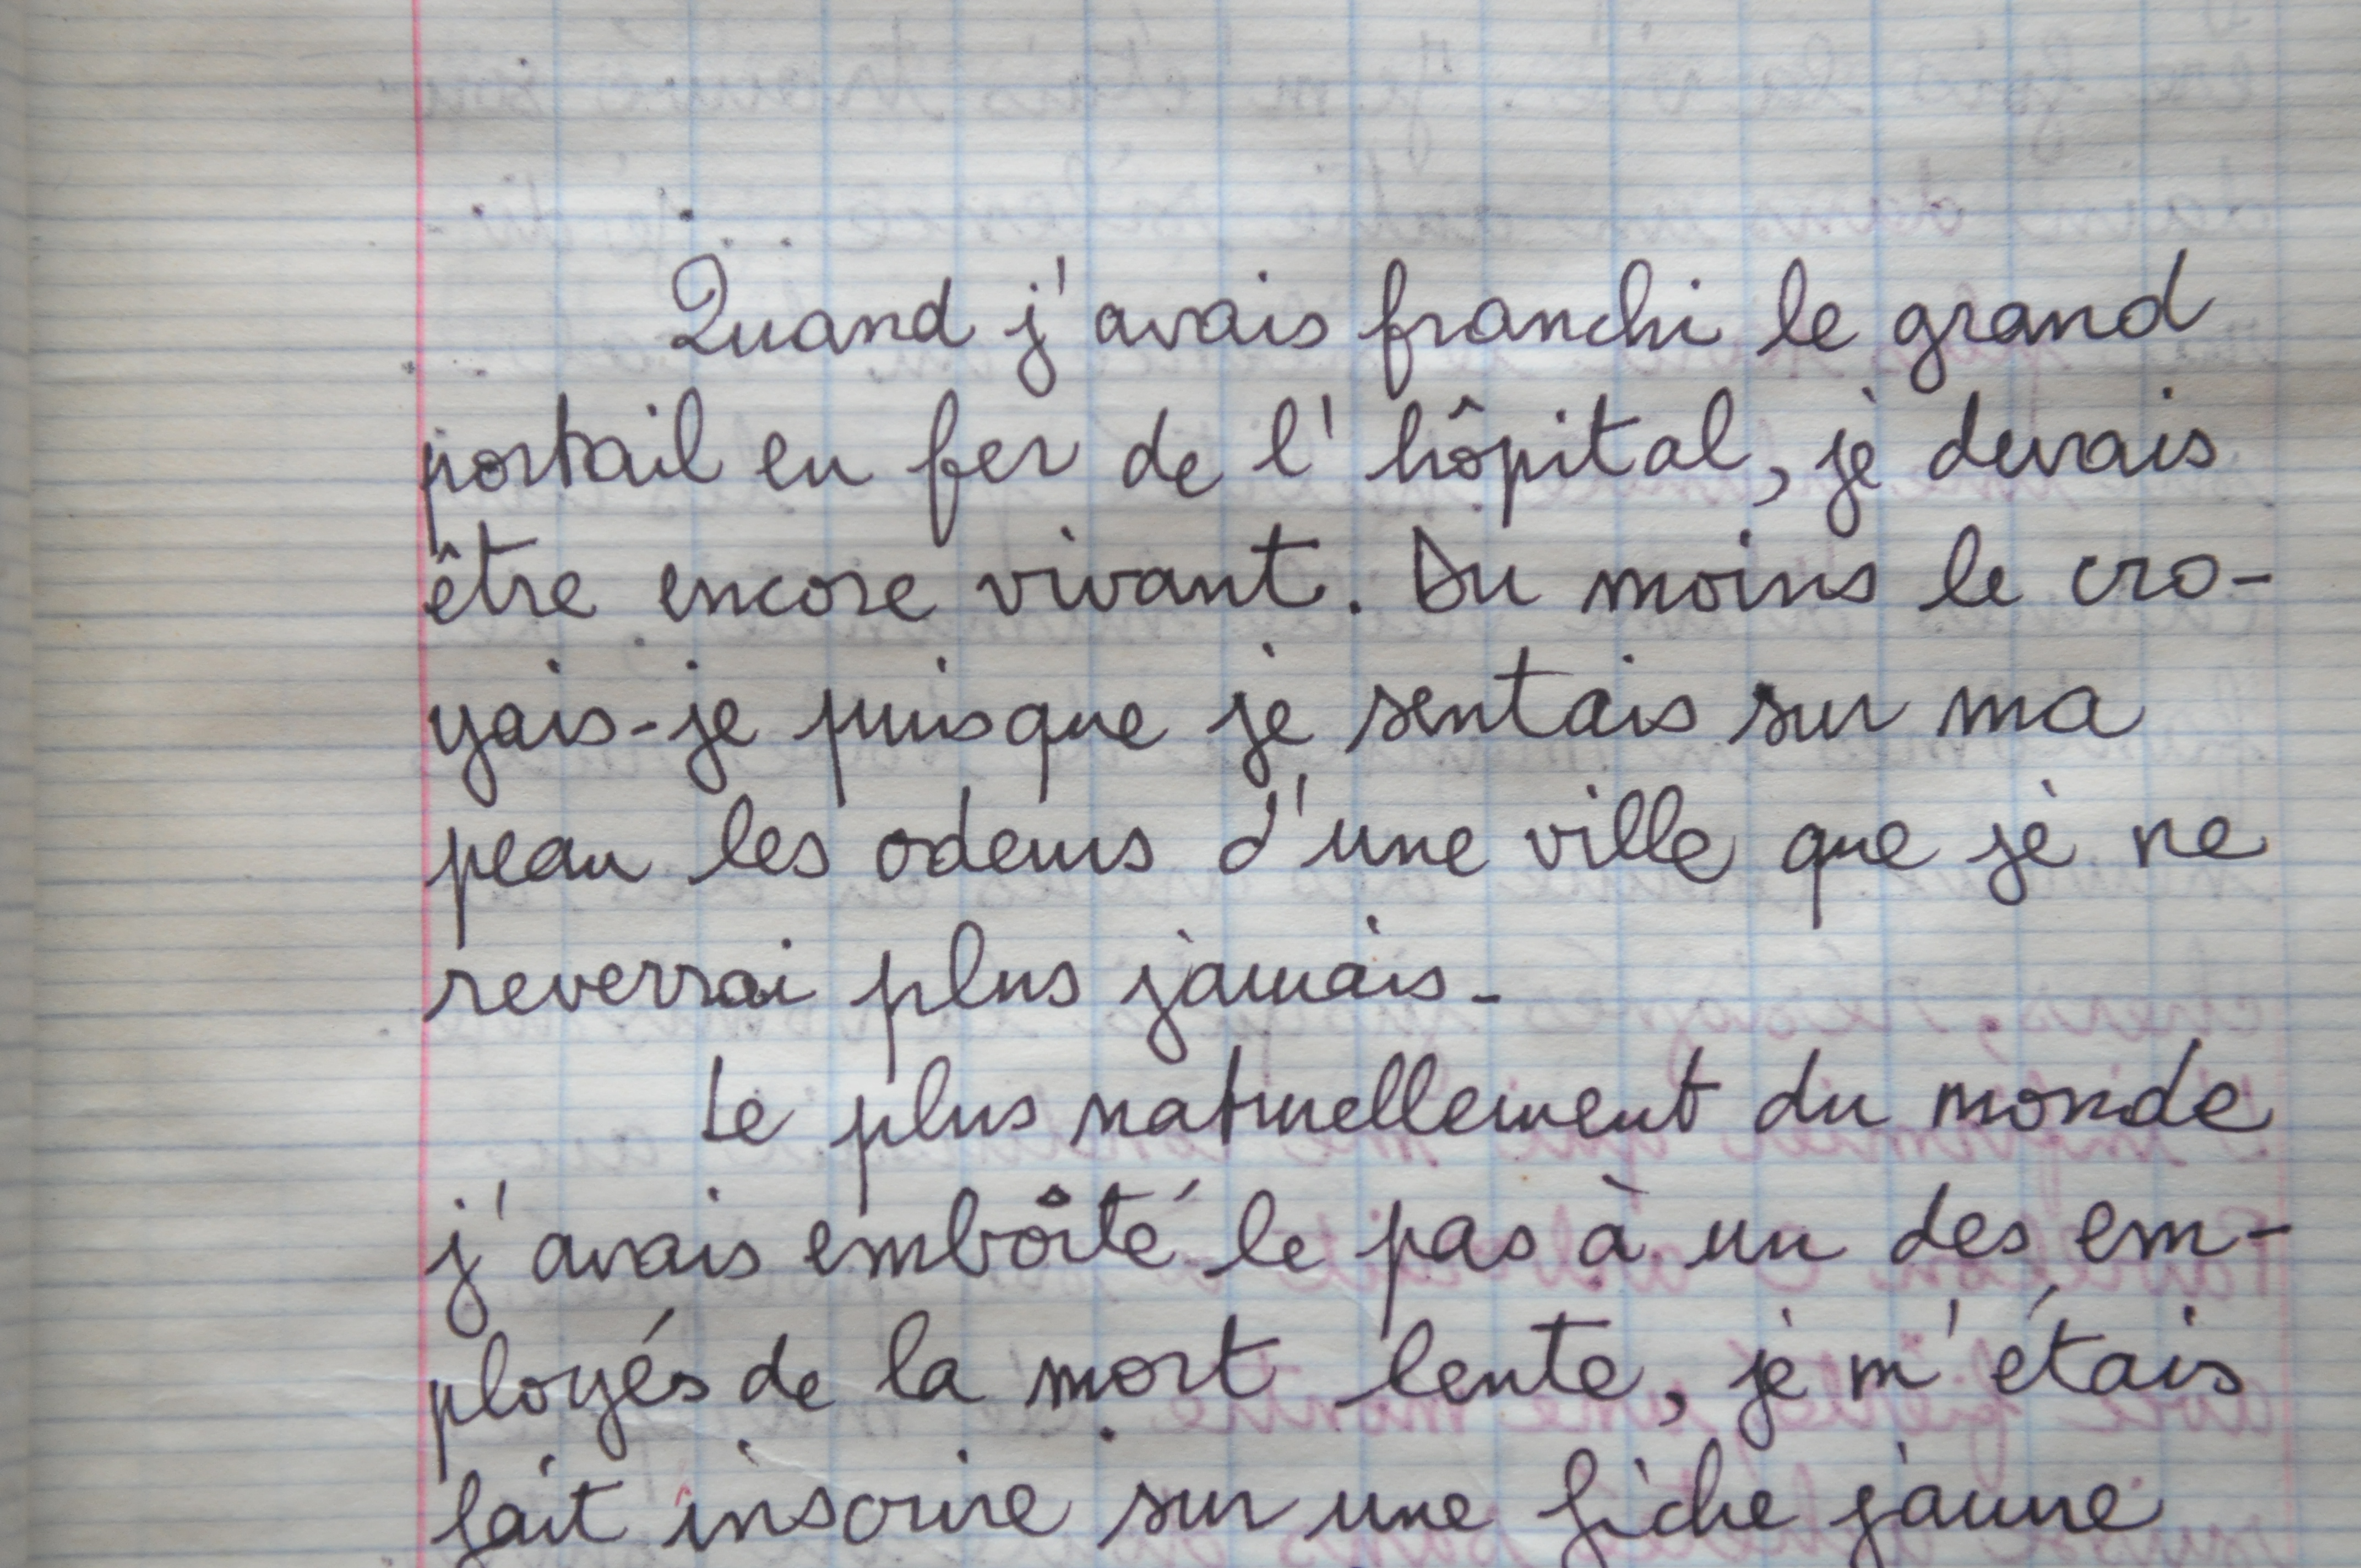 Quand j'avais franchi le grand
portail en fer de l'hôpital, je devais
être encore vivant. Du moins le cro-
yais-je puisque je sentais sur ma
peau les odeurs d'une ville que je ne
reverrai plus jamais.
Le plus naturellement du monde
j'avais emboîté le pas à un des em-
ployés de la mort lente, je m'étais
fait inscrire sur une fiche jaune